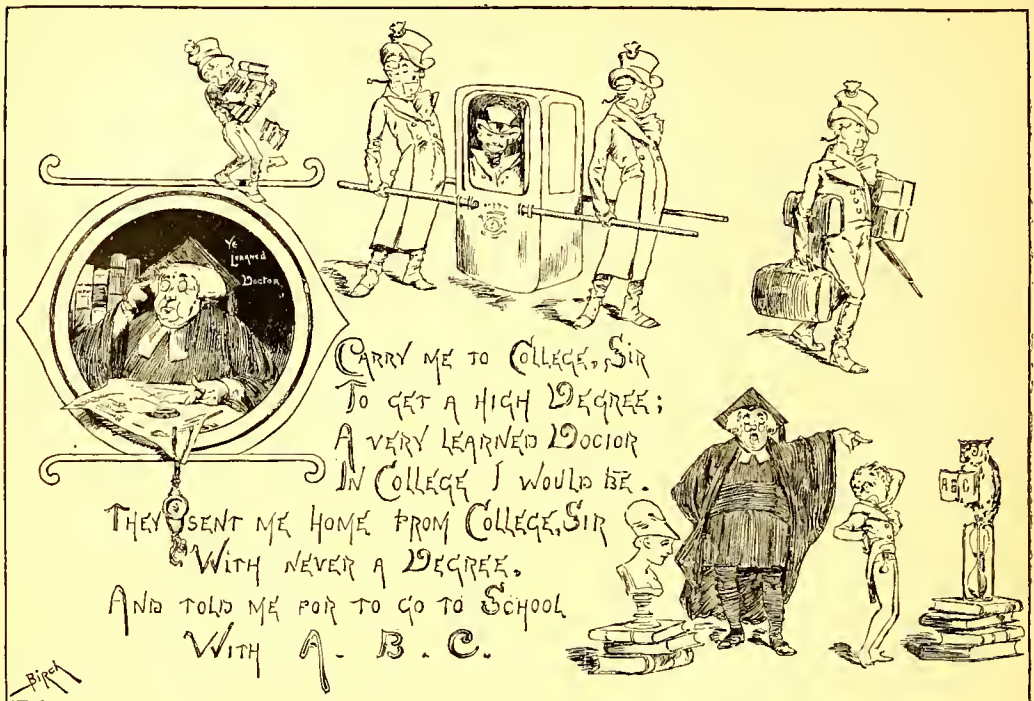 Ye
Learned
Doctor,
Carry me to College, Sir
To get a high Degree;
A very learned Doctor
In College I would be.
They sent me home from College, Sir
With never a Degree,
And told me for to go to School
With A. B. C.
ABC
Birch